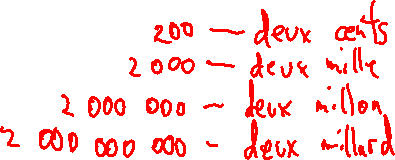 200 — deux cents
2 000 — deux mille
2 000 000 — deux millon
2 000 000 000 — deux millard